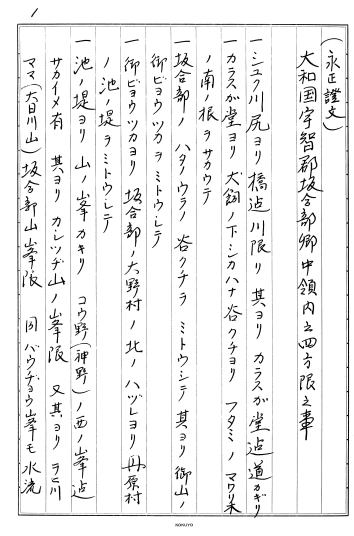 1
(永正證文)
大和国宇智郡坂合部郷中領内之四方限之事
一シユク川尻ヨリ橋迠川限リ 其ヨリ カラスガ堂迠道カギリ
一カラスガ堂ヨリ 犬飼ノ下シカハナ谷クチヨリ フタミノ マワリ禾
ノ南ノ根ヲサカウテ
一坂合部ノ ハタノウラノ 谷クチヲ ミトウシテ 其ヨリ 御山ノ
御ビヨウツカヲ ミトウシテ
一御ビヨウツカヨリ 坂合部ノ大野村ノ 北ノ ハヅレヨリ 丹原村
ノ池ノ堤ヲミトウシテ
一池ノ堤ヨリ 山ノ峯カギリ コウ野(神野)ノ西ノ峯迠
サカイメ有 其ヨリ カシツヂ山ノ峯限 又其ヨリ ヲヒ川
ママ(大日川山)坂合部山峯限 同 バウヂヨウ峯モ 水流
KOKUYO